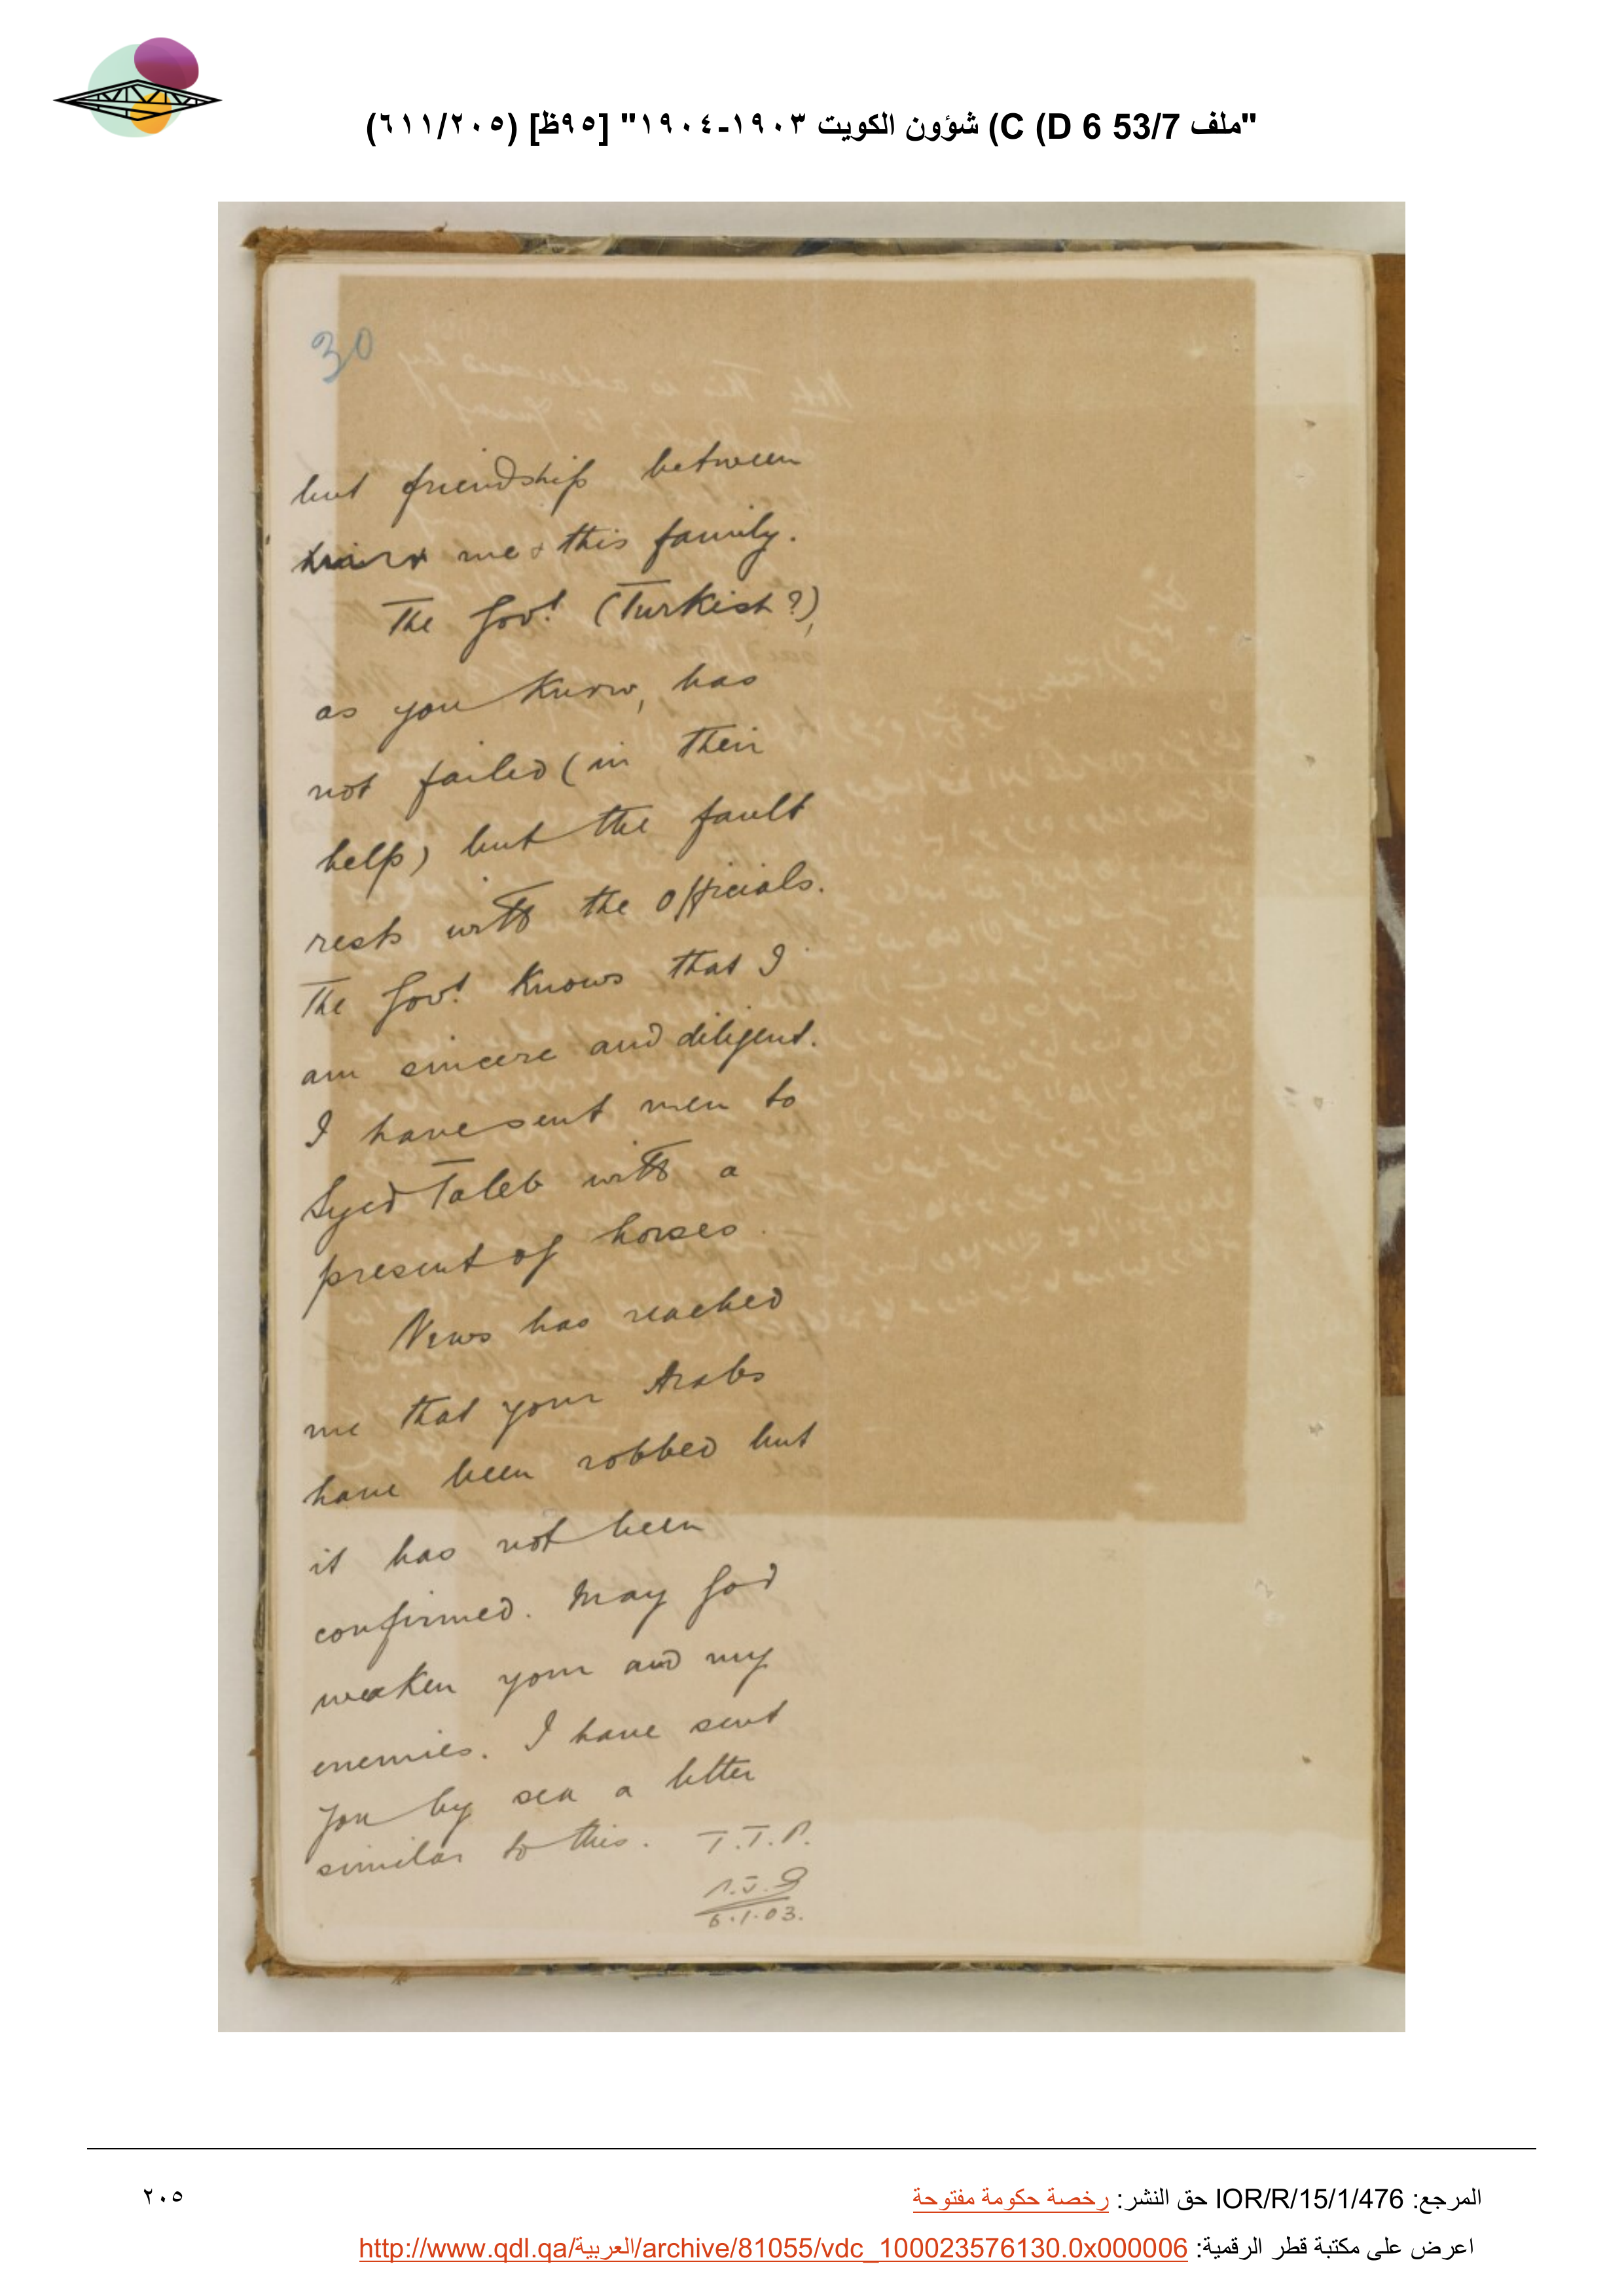 "ملف 53/7 C (D 6) شؤون الكويت ١٩٠٣-١٩٠٤" [٩٥ظ] (٢٠٥/٦١١)
30
but friendship between
me & this family.
The Govt. (Turkish?),
as you know, has
not failed (in their
help) but the fault
rests with the officials.
The Govt. knows that I
am sincere and diligent.
I have sent men to
Syed Taleb with a
present of horses.
News has reached
me that your Arabs
have been robbed but
it has not been
confirmed. May God
weaken your and my
enemies. I have sent
you by sea a letter
similar to this. T.T.P.
6.1.03.
المرجع: IOR/R/15/1/476 حق النشر: رخصة حكومة مفتوحة
٢٠٥
اعرض على مكتبة قطر الرقمية: http://www.qdl.qa/العربية/archive/81055/vdc_100023576130.0x000006